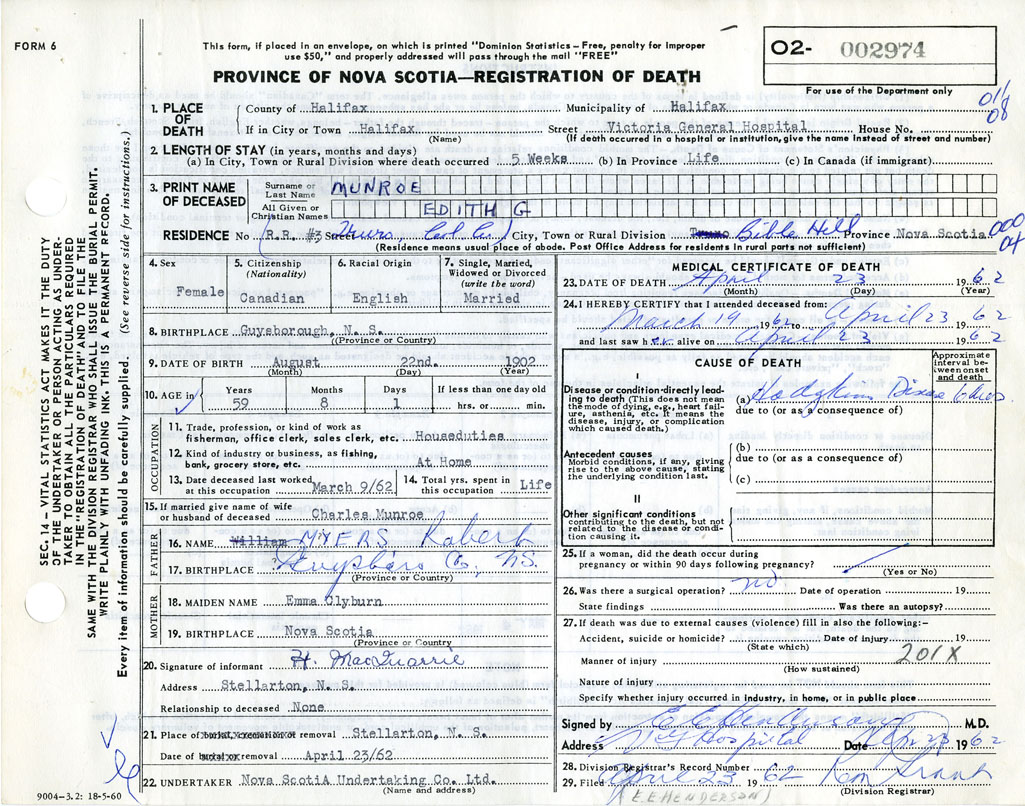 FORM 6
This form, if placed in an envelope, on which is printed "Dominion Statistics – Free, penalty for improper
use $50," and properly addressed will pass through the mail "FREE"
PROVINCE OF NOVA SCOTIA—REGISTRATION OF DEATH
O2- 002974
For use of the Department only
1. PLACE OF DEATH
County of Halifax Municipality of Halifax
If in City or Town Halifax Street Victoria General Hospital House No.
(Name) (If death occurred in a hospital or institution, give the name instead of street and number)
2. LENGTH OF STAY (in years, months and days)
(a) In City, Town or Rural Division where death occurred 5 Weeks (b) In Province Life (c) In Canada (if immigrant)
3. PRINT NAME OF DECEASED
Surname or Last Name MUNROE
All Given or Christian Names EDITH G
RESIDENCE No R.R. #3 Street City, Town or Rural Division Truro Bible Hill Province Nova Scotia
(Residence means usual place of abode. Post Office Address for residents in rural parts not sufficient)
4. Sex Female
5. Citizenship (Nationality) Canadian
6. Racial Origin English
7. Single, Married, Widowed or Divorced (write the word) Married
8. BIRTHPLACE Guysborough, N. S.
(Province or Country)
9. DATE OF BIRTH August 22nd. 1902
(Month) (Day) (Year)
10. AGE in Years 59 Months 8 Days 1 If less than one day old hrs. or min.
OCCUPATION
11. Trade, profession, or kind of work as
fisherman, office clerk, sales clerk, etc. Houseduties
12. Kind of industry or business, as fishing,
bank, grocery store, etc. At Home
13. Date deceased last worked at this occupation March 9/62
14. Total yrs. spent in this occupation Life
15. If married give name of wife
or husband of deceased Charles Munroe
FATHER
16. NAME William MYERS Robert
17. BIRTHPLACE Guysboro Co, N.S.
(Province or Country)
MOTHER
18. MAIDEN NAME Emma Clyburn
19. BIRTHPLACE Nova Scotia
(Province or Country)
20. Signature of informant H. MacQuarrie
Address Stellarton, N. S.
Relationship to deceased None
21. Place of burial, cremation or removal Stellarton, N. S.
Date of burial or removal April 23/62
22. UNDERTAKER Nova ScotiA Undertaking Co. Ltd.
(Name and address)
9004–3.2: 18-5-60
MEDICAL CERTIFICATE OF DEATH
23. DATE OF DEATH April 23 1962
(Month) (Day) (Year)
24. I HEREBY CERTIFY that I attended deceased from:
March 19 1962 to April 23 1962
and last saw her alive on April 23 1962
CAUSE OF DEATH
Approximate interval between onset and death
I
Disease or condition directly leading to death (This does not mean the mode of dying, e.g., heart failure, asthenia, etc. It means the disease, injury, or complication which caused death.)
(a) Hodgkins
due to (or as a consequence of)
Antecedent causes
Morbid conditions, if any, giving rise to the above cause, stating the underlying condition last.
(b)
due to (or as a consequence of)
(c)
II
Other significant conditions
contributing to the death, but not related to the disease or condition causing it.
25. If a woman, did the death occur during
pregnancy or within 90 days following pregnancy?
(Yes or No)
26. Was there a surgical operation? no Date of operation 19
State findings Was there an autopsy?
27. If death was due to external causes (violence) fill in also the following:-
Accident, suicide or homicide? Date of injury 19
(State which)
201X
Manner of injury
(How sustained)
Nature of injury
Specify whether injury occurred in industry, in home, or in public place
Signed by E E Henderson M.D.
Address V G Hospital Date Apr 23 1962
28. Division Registrar's Record Number
29. Filed April 23 1962
(Division Registrar)
(E.E HENDERSON)
SEC. 14 – VITAL STATISTICS ACT MAKES IT THE DUTY
OF THE UNDERTAKER OR PERSON ACTING AS UNDER-
TAKER TO OBTAIN ALL THE PARTICULARS REQUIRED
IN THE "REGISTRATION OF DEATH" AND TO FILE THE
SAME WITH THE DIVISION REGISTRAR WHO SHALL ISSUE THE BURIAL PERMIT.
WRITE PLAINLY WITH UNFADING INK. THIS IS A PERMANENT RECORD.
Every item of information should be carefully supplied. (See reverse side for instructions.)